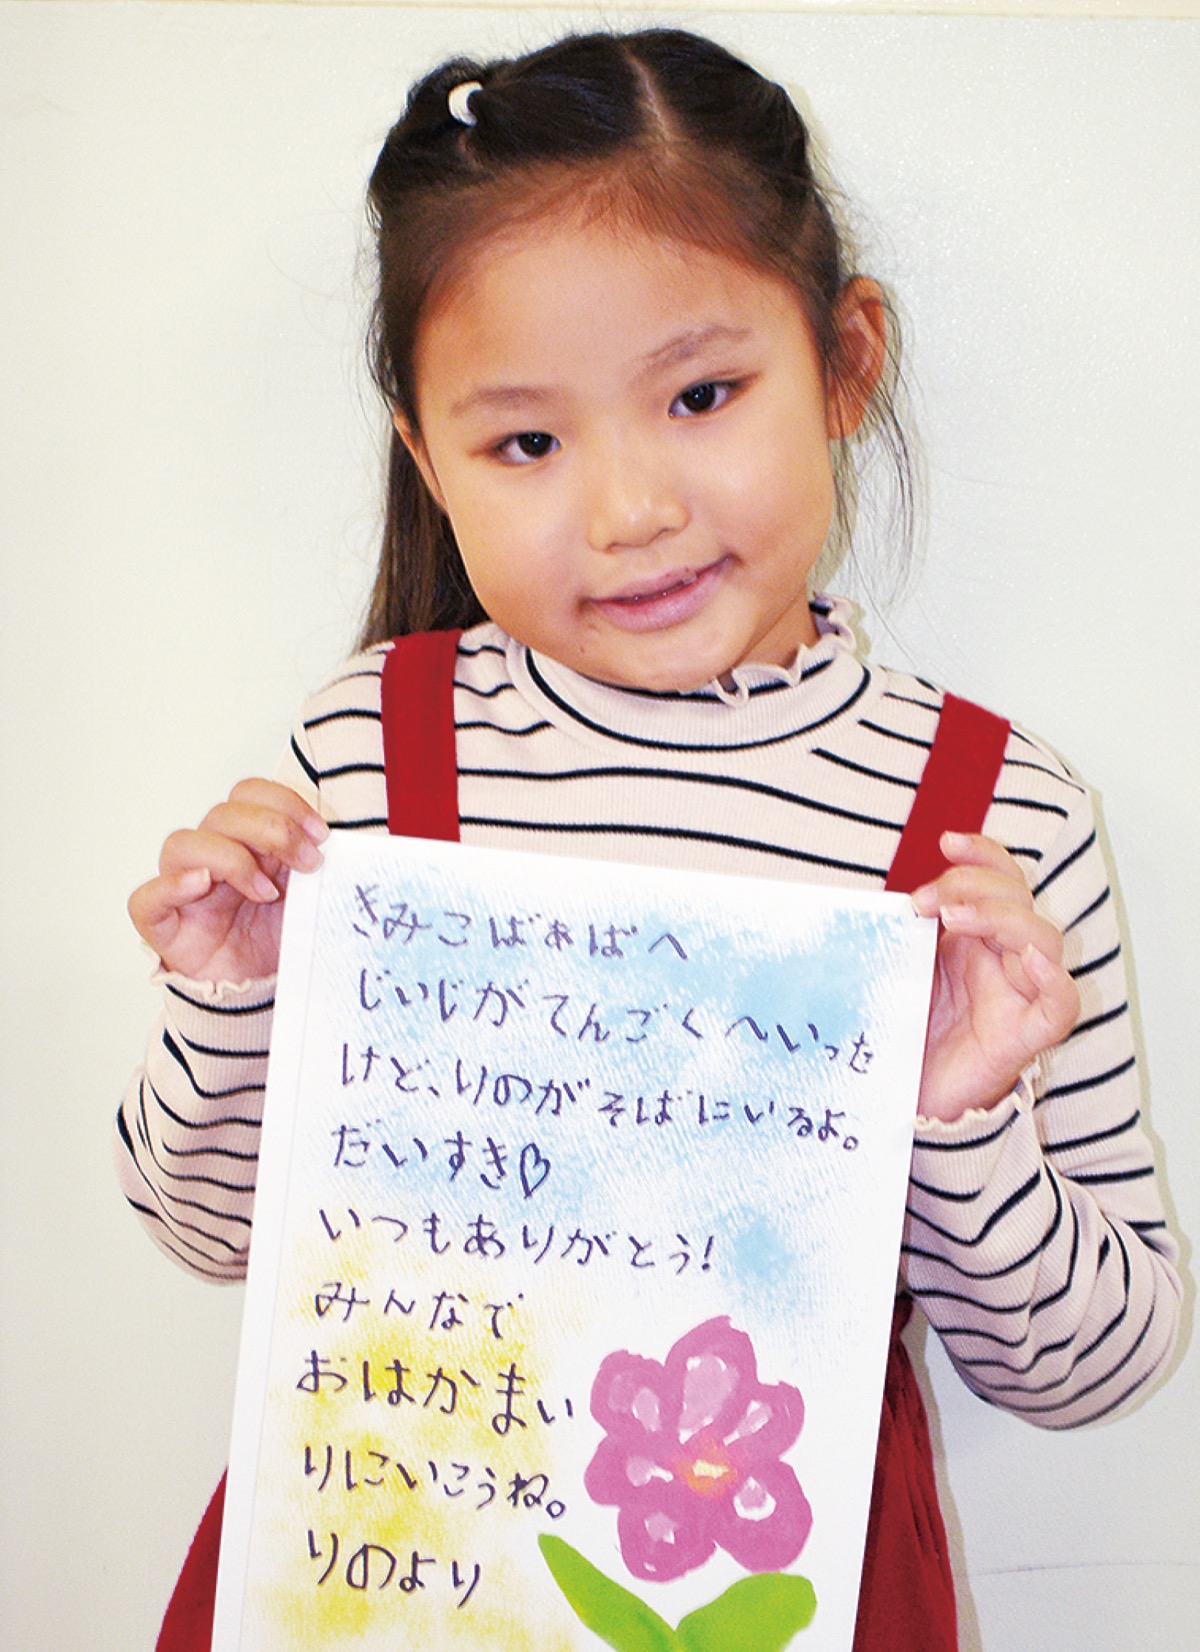 きみこばぁばへ
じいじがてんごくへいった
けど、りのがそばにいるよ。
だいすき♡
いつもありがとう!
みんなで
おはかまい
りにいこうね。
りのより